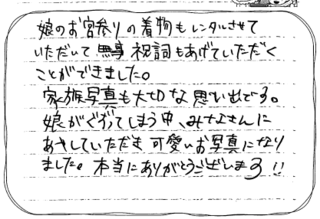 娘のお宮参りの着物もレンタルさせて
いただいて 祝詞もあげていただく
ことができました。
家族写真も大切な思い出です。
娘がぐずってしまう中、みなさんに
あやしていただき 可愛いお写真になり
ました。本当にありがとうございます!!